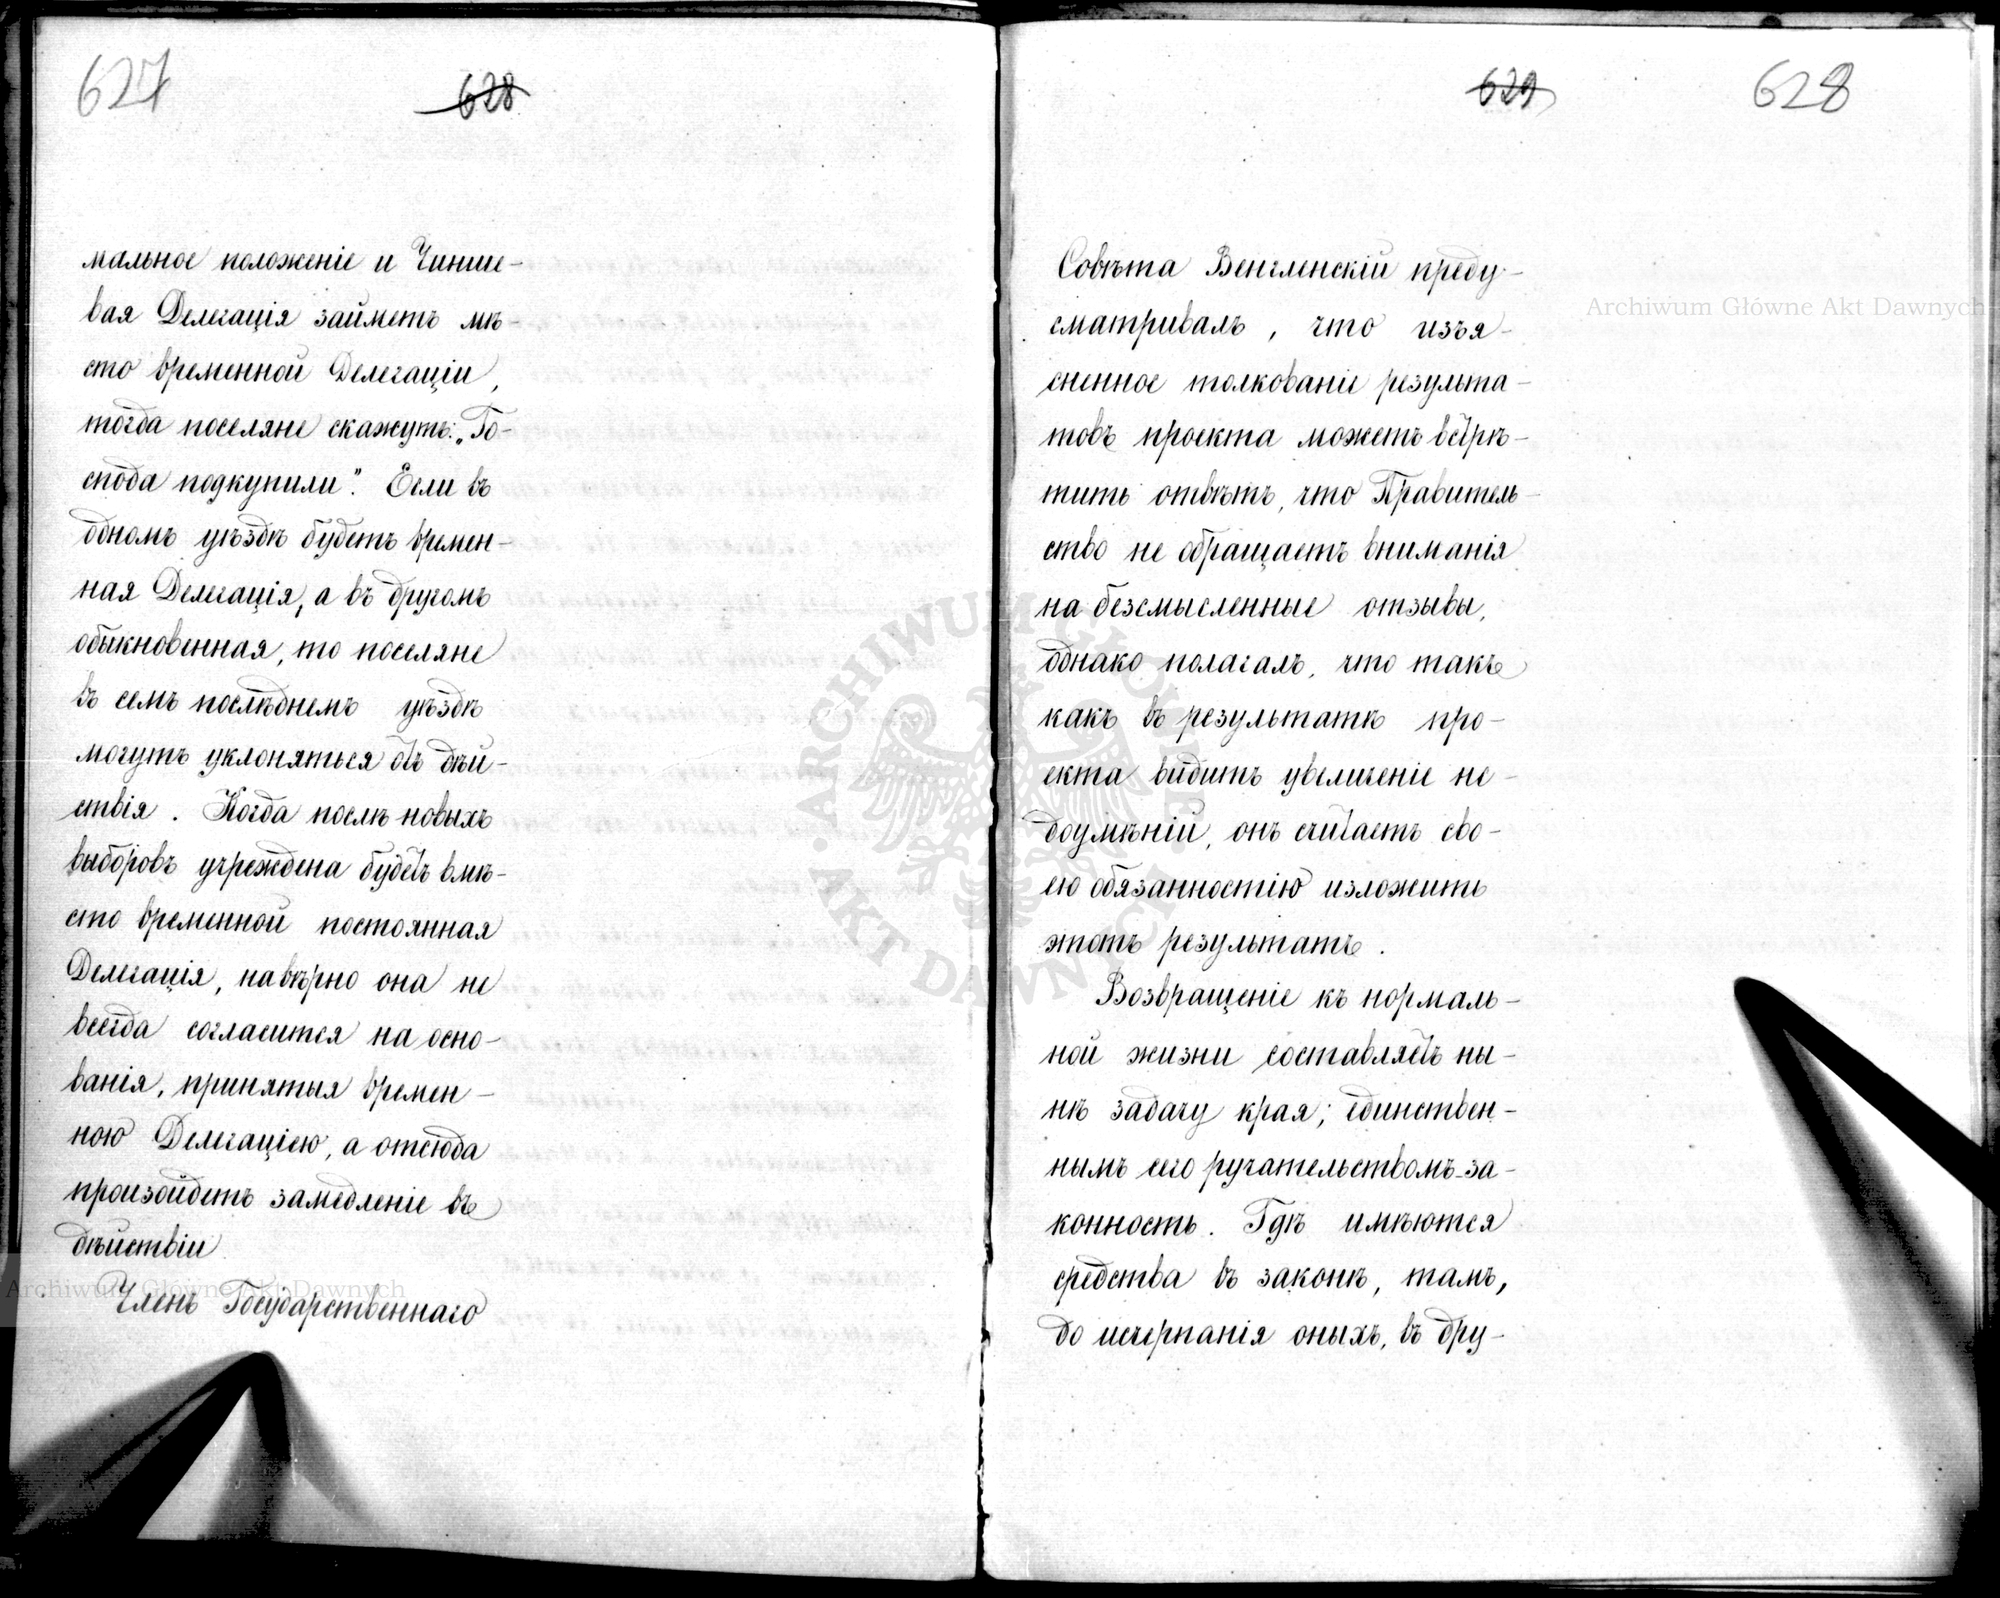 627
628
мальное положеніе и Чинше-
вая Делегація займетъ мѣ-
сто временной Делегаціи,
тогда поселяне скажутъ: „Го-
спода подкупили". Если въ
одномъ уѣздѣ будетъ времен-
ная Делегація, а въ другомъ
обыкновенная, то поселяне
въ семъ послѣднемъ уѣздѣ
могутъ уклоняться отъ дѣй-
ствія. Когда послѣ новыхъ
выборовъ учреждена будетъ вмѣ-
сто временной постоянная
Делегація, навѣрно она не
всегда согласится на осно-
ванія, принятыя времен-
ною Делегаціею, а отсюда
произойдетъ замедленіе въ
дѣйствіи
Членъ Государственнаго
629
628
Совѣта Венгленскій преду-
сматривалъ, что изъя-
сненное толкованіе результа-
товъ проекта можетъ встрѣ-
тить отвѣтъ, что Правитель-
ство не обращаетъ вниманія
на безсмысленные отзывы,
однако полагалъ, что такъ
какъ въ результатѣ про-
екта видитъ увеличеніе не-
доумѣній, онъ считаетъ сво-
ею обязанностію изложить
этотъ результатъ.
Возвращеніе къ нормаль-
ной жизни составляетъ ны-
нѣ задачу края; единствен-
нымъ сего ручательствомъ-за-
конность. Гдѣ имѣются
средства въ законѣ, тамъ,
до исчерпанія оныхъ, въ дру-
Archiwum Główne Akt Dawnych
Archiwum Główne Akt Dawnych
ARCHIWUM GŁÓWNE AKT DAWNYCH